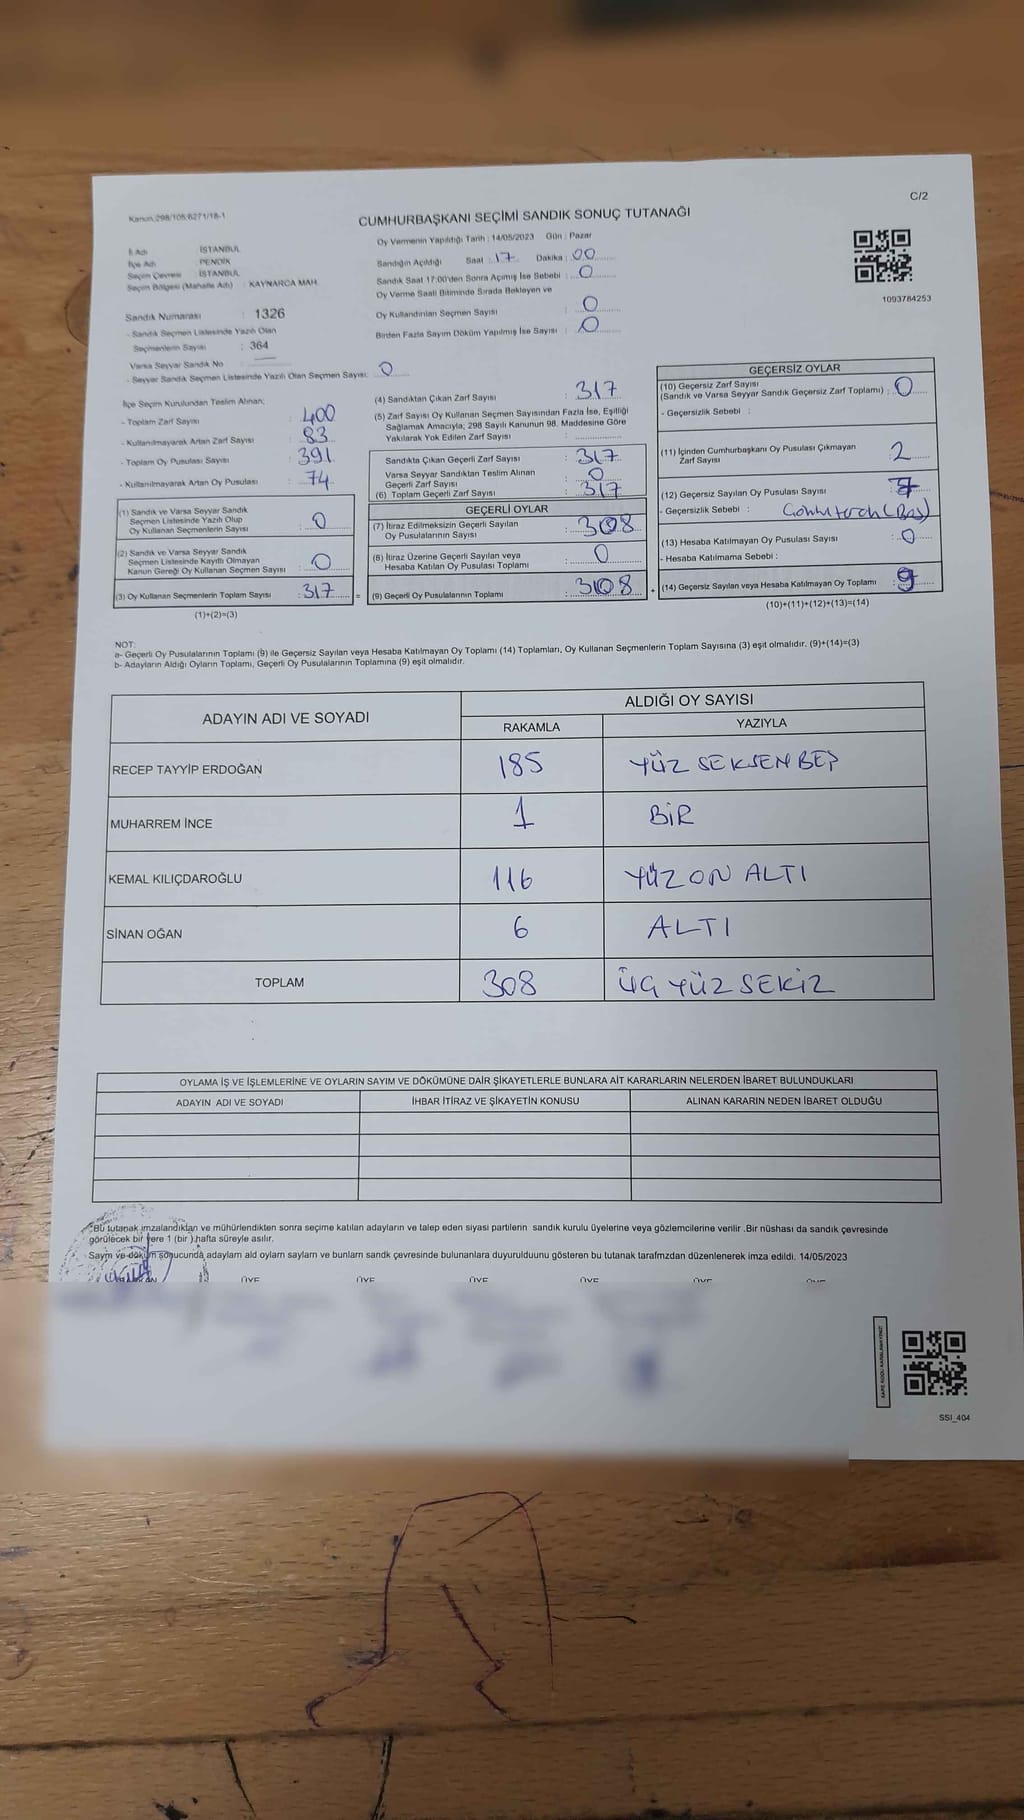 C/2
Kanun:298/105:6271/18-1
CUMHURBAŞKANI SEÇİMİ SANDIK SONUÇ TUTANAĞI
Oy Vermenin Yapıldığı Tarih : 14/05/2023 Gün : Pazar
İl Adı İSTANBUL
İlçe Adı PENDİK
Seçim Çevresi İSTANBUL
Seçim Bölgesi (Mahalle Adı) : KAYNARCA MAH.
Sandığın Açıldığı Saat : 17 Dakika : 00
Sandık Saat 17:00'den Sonra Açımış İse Sebebi : 0
Oy Verme Saati Bitiminde Sırada Bekleyen ve
Oy Kullandırılan Seçmen Sayısı : 0
Birden Fazla Sayım Döküm Yapılmış İse Sayısı : 0
1093784253
Sandık Numarası : 1326
- Sandık Seçmen Listesinde Yazılı Olan
Seçmenlerin Sayısı : 364
Varsa Seyyar Sandık No
- Seyyar Sandık Seçmen Listesinde Yazılı Olan Seçmen Sayısı: 0
İlçe Seçim Kurulundan Teslim Alınan;
- Toplam Zarf Sayısı : 400
- Kullanılmayarak Artan Zarf Sayısı : 83
- Toplam Oy Pusulası Sayısı : 391
- Kullanılmayarak Artan Oy Pusulası : 74
(1) Sandık ve Varsa Seyyar Sandık
Seçmen Listesinde Yazılı Olup
Oy Kullanan Seçmenlerin Sayısı : 0
(2) Sandık ve Varsa Seyyar Sandık
Seçmen Listesinde Kayıtlı Olmayan
Kanun Gereği Oy Kullanan Seçmen Sayısı : 0
(3) Oy Kullanan Seçmenlerin Toplam Sayısı : 317 =
(1)+(2)=(3)
(4) Sandıktan Çıkan Zarf Sayısı : 317
(5) Zarf Sayısı Oy Kullanan Seçmen Sayısından Fazla İse, Eşitliği
Sağlamak Amacıyla; 298 Sayılı Kanunun 98. Maddesine Göre
Yakılarak Yok Edilen Zarf Sayısı :
Sandıkta Çıkan Geçerli Zarf Sayısı : 317
Varsa Seyyar Sandıktan Teslim Alınan
Geçerli Zarf Sayısı : 0
(6) Toplam Geçerli Zarf Sayısı : 317
GEÇERLİ OYLAR
(7) İtiraz Edilmeksizin Geçerli Sayılan
Oy Pusulalarının Sayısı : 308
(8) İtiraz Üzerine Geçerli Sayılan veya
Hesaba Katılan Oy Pusulası Toplamı : 0
(9) Geçerli Oy Pusulalarının Toplamı : 308 +
GEÇERSİZ OYLAR
(10) Geçersiz Zarf Sayısı
(Sandık ve Varsa Seyyar Sandık Geçersiz Zarf Toplamı) : 0
- Geçersizlik Sebebi :
(11) İçinden Cumhurbaşkanı Oy Pusulası Çıkmayan
Zarf Sayısı : 2
(12) Geçersiz Sayılan Oy Pusulası Sayısı : 7
- Geçersizlik Sebebi :
(13) Hesaba Katılmayan Oy Pusulası Sayısı : 0
- Hesaba Katılmama Sebebi :
(14) Geçersiz Sayılan veya Hesaba Katılmayan Oy Toplamı : 9
(10)+(11)+(12)+(13)=(14)
NOT:
a- Geçerli Oy Pusulalarının Toplamı (9) ile Geçersiz Sayılan veya Hesaba Katılmayan Oy Toplamı (14) Toplamları, Oy Kullanan Seçmenlerin Toplam Sayısına (3) eşit olmalıdır. (9)+(14)=(3)
b- Adayların Aldığı Oyların Toplamı, Geçerli Oy Pusulalarının Toplamına (9) eşit olmalıdır.
ADAYIN ADI VE SOYADI ALDIĞI OY SAYISI
RAKAMLA YAZIYLA
RECEP TAYYİP ERDOĞAN 185 YÜZ SEKSEN BEŞ
MUHARREM İNCE 1 BİR
KEMAL KILIÇDAROĞLU 116 YÜZ ON ALTI
SİNAN OĞAN 6 ALTI
TOPLAM 308 ÜÇ YÜZ SEKİZ
OYLAMA İŞ VE İŞLEMLERİNE VE OYLARIN SAYIM VE DÖKÜMÜNE DAİR ŞİKAYETLERLE BUNLARA AİT KARARLARIN NELERDEN İBARET BULUNDUKLARI
ADAYIN ADI VE SOYADI İHBAR İTİRAZ VE ŞİKAYETİN KONUSU ALINAN KARARIN NEDEN İBARET OLDUĞU
*Bu tutanak imzalandıktan ve mühürlendikten sonra seçime katılan adayların ve talep eden siyasi partilerin sandık kurulu üyelerine veya gözlemcilerine verilir .Bir nüshası da sandık çevresinde
görülecek bir yere 1 (bir ) hafta süreyle asılır.
Sayım ve döküm sonucunda adaylam ald oylam saylam ve bunlarn sandk çevresinde bulunanlara duyurulduunu gösteren bu tutanak tarafmzdan düzenlenerek imza edildi. 14/05/2023
ÜYE ÜYE ÜYE ÜYE ÜYE ÜYE
SSI_404